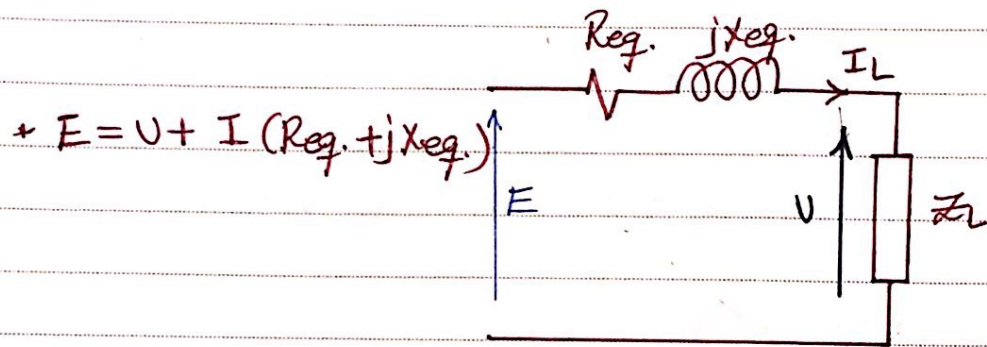 Req. jXeq.
IL
+ E = U + I (Req. + jXeq.)
E
U
ZL